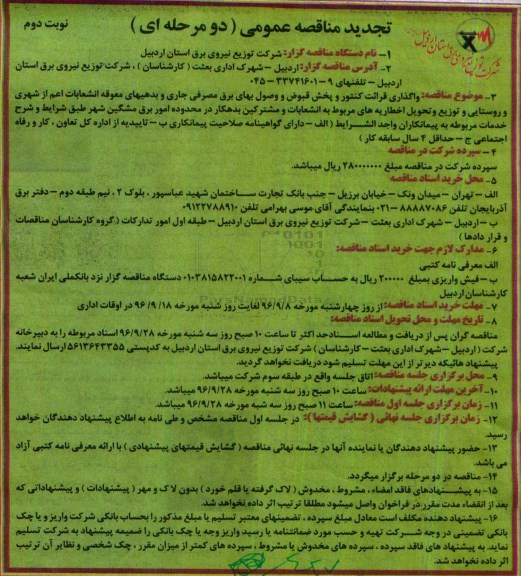 تجدید مناقصه عمومی ( دو مرحله ای )
نوبت دوم
۱ – نام دستگاه مناقصه گزار: شرکت توزیع نیروی برق استان اردبیل
۲ – آدرس مناقصه گزار: اردبیل – شهرک اداری بعثت ( کارشناسان ) ، شرکت توزیع نیروی برق استان
اردبیل – تلفنهای ۹ – ۳۳۷۴۱۶۰۱ – ۰۴۵
۳ – موضوع مناقصه: واگذاری قرائت کنتور و پخش قبوض و وصول بهای برق مصرفی جاری و بدهیهای معوقه انشعابات اعم از شهری
و روستایی و توزیع وتحویل اخطاریه های مربوط به انشعابات و مشترکین بدهکار در محدوده امور برق مشگین شهر طبق شرایط و شرح
خدمات مربوطه به پیمانکاران واجد الشرایط ( الف – دارای گواهینامه صلاحیت پیمانکاری ب – تاییدیه از اداره کل تعاون ، کار و رفاه
اجتماعی ج – حداقل ۴ سال سابقه کار )
۴ – سپرده شرکت در مناقصه
سپرده شرکت در مناقصه مبلغ ۲۸۰۰۰۰۰۰۰ ریال میباشد.
۵ – محل خرید اسناد مناقصه
الف – تهران – میدان ونک – خیابان برزیل – جنب بانک تجارت ساختمان شهید عباسپور ، بلوک ۲ ، نیم طبقه دوم – دفتر برق
آذربایجان تلفن ۸۸۸۸۷۰۸۶ – ۰۲۱ بنمایندگی آقای موسی بهرامی تلفن ۰۹۱۲۲۷۸۸۹۱۰
ب – اردبیل – شهرک اداری بعثت – شرکت توزیع نیروی برق استان اردبیل – طبقه اول امور تدارکات ( گروه کارشناسان مناقصات
و قرار دادها )
۶ – مدارک لازم جهت خرید اسناد مناقصه:
الف معرفی نامه کتبی
ب – فیش واریزی بمبلغ ۲۰۰۰۰۰ ریال به حساب سیبای شماره ۰۱۰۳۸۱۵۸۲۲۰۰۱ دستگاه مناقصه گزار نزد بانکملی ایران شعبه
کارشناسان اردبیل
۷ – مهلت خرید اسناد مناقصه: از روز چهارشنبه مورخه ۹۶/۹/۸ لغایت روز شنبه مورخه ۹۶/۹/۱۸ در اوقات اداری
۸ – تاریخ مهلت و محل تحویل اسناد مناقصه:
مناقصه گران پس از دریافت و مطالعه اسناد حد اکثر تا ساعت ۱۰ صبح روز سه شنبه مورخه ۹۶/۹/۲۸ اسناد مربوطه را به دبیرخانه
شرکت ( اردبیل – شهرک اداری بعثت – کارشناسان ) شرکت توزیع نیروی برق استان اردبیل به کدپستی ۵۶۱۳۶۴۳۳۵۵ ارسال نمایند.
پیشنهاد هائیکه دیرتر از این مهلت تسلیم شود دریافت نخواهد گردید.
۹ – محل برگزاری جلسه مناقصه: اتاق جلسه واقع در طبقه سوم شرکت میباشد.
۱۰ – آخرین مهلت ارائه پیشنهادات: ساعت ۱۰ صبح روز سه شنبه مورخه ۹۶/۹/۲۸ میباشد.
۱۱ – زمان برگزاری جلسه اول مناقصه: ساعت ۱۱ صبح روز سه شبه مورخه ۹۶/۹/۲۸ میباشد.
۱۲ – زمان برگزاری جلسه نهائی ( گشایش قیمتها ): در جلسه اول مناقصه مشخص و طی نامه به اطلاع پیشنهاد دهندگان خواهد
رسید.
۱۳ – حضور پیشنهاد دهندگان یا نماینده آنها در جلسه نهائی مناقصه ( گشایش قیمتهای پیشنهادی ) با ارائه معرفی نامه کتبی آزاد
می باشد.
۱۴ – مناقصه در دو مرحله برگزار میگردد.
۱۵ – به پیشنهادهای فاقد امضاء ، مشروط ، مخدوش ( لاک گرفته یا قلم خورد ) بدون لاک و مهر ( پیشنهادات ) و پیشنهاداتی که
بعد از انقضاء مدت مقرر در فراخوان واصل میشود مطلقا ترتیب اثر داده نخواهد شد.
۱۶ – پیشنهاد دهنده مکلف است معادل مبلغ سپرده ، تضمینهای معتبر تسلیم یا مبلغ مذکور را بحساب بانکی شرکت واریز و یا چک
بانکی تضمینی در وجه شرکت تهیه و حسب مورد ضمانتنامه یا رسید واریز وجه یا چک بانکی را ضمیمه پیشنهاد به شرکت تسلیم
نماید. به پیشنهاد های فاقد سپرده ، سپرده های مخدوش یا مشروط ، سپرده های کمتر از میزان مقرر ، چک شخصی و نظایر آن ترتیب
اثر داده نخواهد شد.